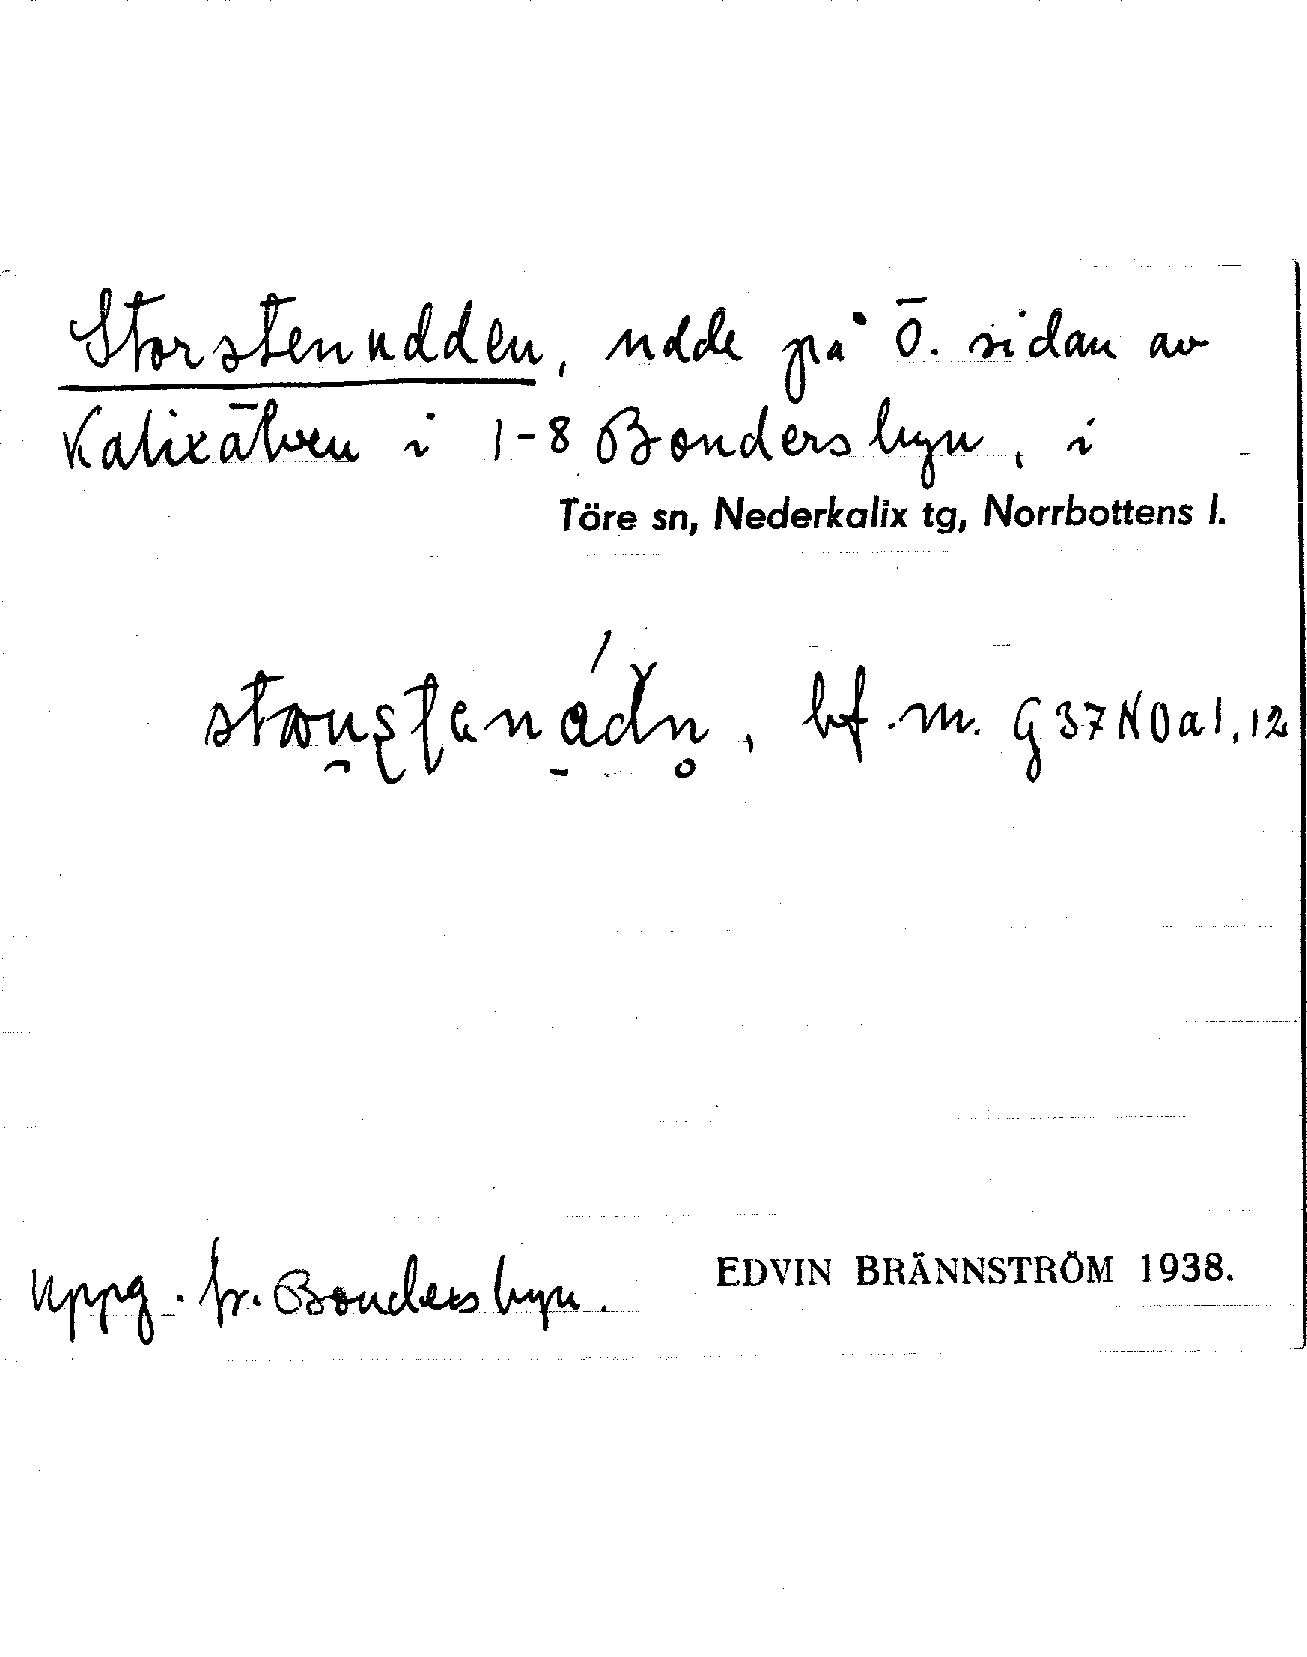 Storstenudden, udde på Ö. sidan av
Kalixälven i 1-8 Bondersbyn, i
Töre sn, Nederkalix tg, Norrbottens l.
bf. m. G 37 NO a 1, 12
Uppg. fr. Bondersbyn. EDVIN BRÄNNSTRÖM 1938.